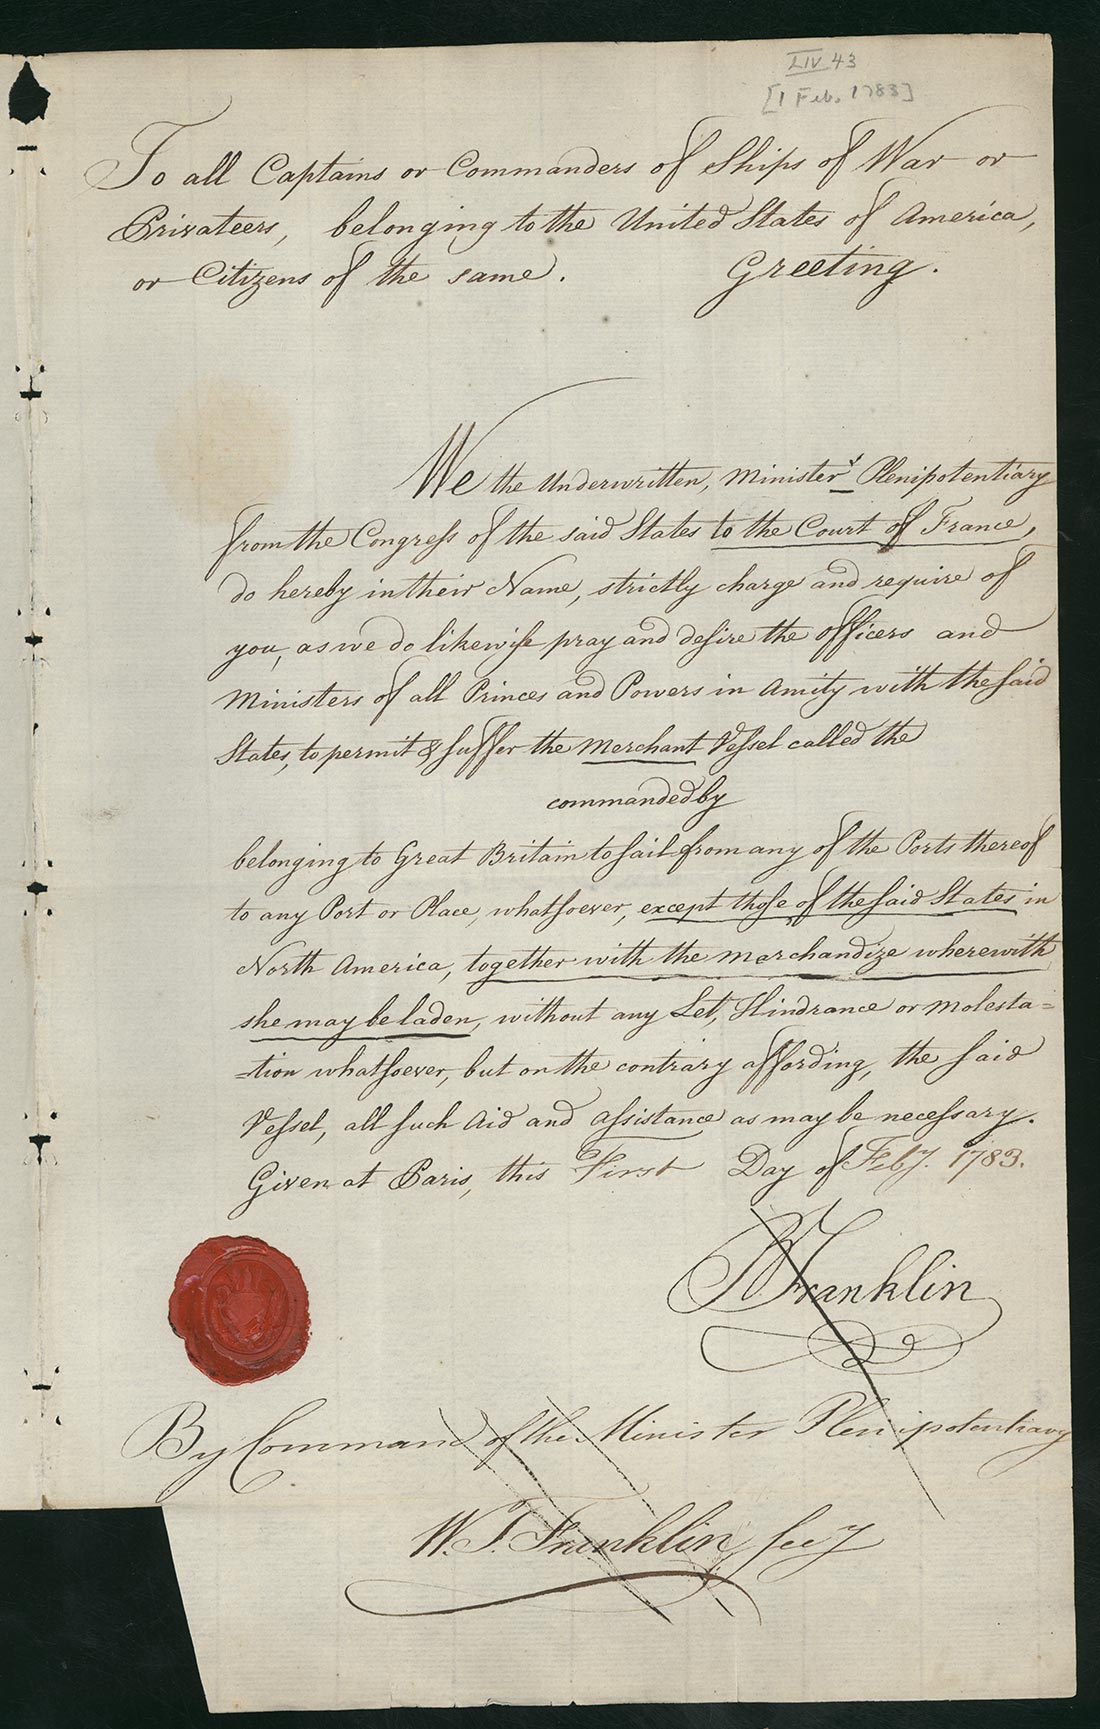 LIV 43
[1 Feb. 1783]
To all Captains or Commanders of Ships of War or
Privateers, belonging to the United States of America,
or Citizens of the same. Greeting.
We the Underwritten, Minister Plenipotentiary
from the Congress of the said States to the Court of France,
do hereby in their Name, strictly charge and require of
you, as we do likewise pray and desire the officers and
Ministers of all Princes and Powers in Amity with the said
States, to permit & suffer the Merchant Vessel called the
commanded by
belonging to Great Britain to sail from any of the Ports thereof
to any Port or Place, whatsoever, except those of the said States in
North America, together with the Merchandize wherewith
she may be laden, without any Let, Hindrance or Molesta=
=tion whatsoever, but on the contrary affording, the said
Vessel, all such Aid and assistance as may be necessary.
Given at Paris, this First Day of Feby. 1783.
B Franklin
By Command of the Minister Plenipotentiary
W. T. Franklin, secy